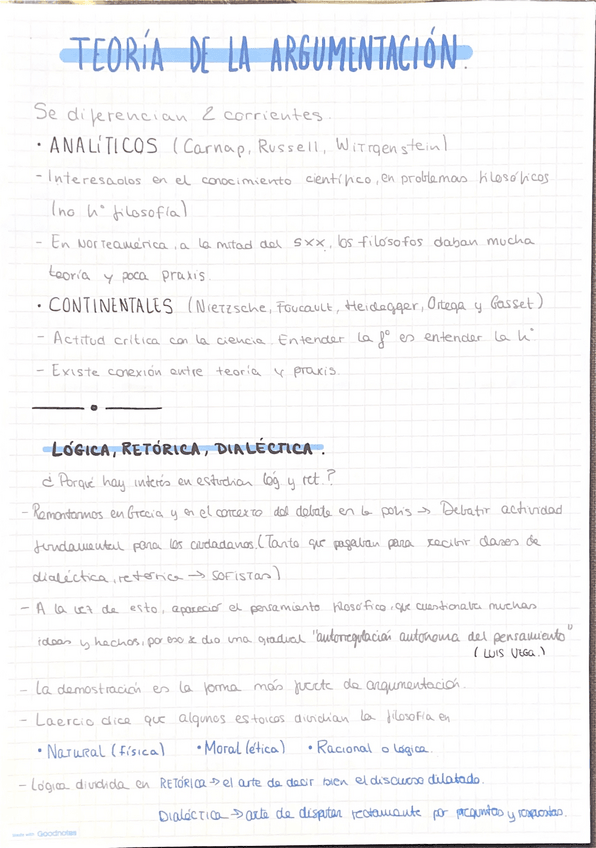 TEORÍA DE LA ARGUMENTACIÓN.
Se diferencian 2 corrientes.
• ANALÍTICOS (Carnap, Russell, Wittgenstein)
- Interesados en el conocimiento científico, en problemas filosóficos
(no hª filosofía)
- En Norteamérica, a la mitad del SXX, los filósofos daban mucha
teoría y poca praxis.
• CONTINENTALES (Nietzsche, Foucault, Heidegger, Ortega y Gasset)
- Actitud crítica con la ciencia. Entender la fº es entender la hª
- Existe conexión entre teoría y praxis.
LÓGICA, RETÓRICA, DIALÉCTICA.
¿Porqué hay interés en estudiar lóg y ret.?
- Remontarnos en Grecia y en el contexto del debate en la polis → Debatir actividad
fundamental para los ciudadanos. (Tanto que pagaban para recibir clases de
dialéctica, retórica → SOFISTAS)
- A la vez de esto, apareció el pensamiento filosófico, que cuestionaba muchas
ideas y hechos, por eso se dio una gradual "autorregulación autónoma del pensamiento"
(LUIS VEGA.)
- La demostración es la forma más fuerte de argumentación.
- Laercio dice que algunos estoicos dividían la filosofía en
• Natural (física) • Moral (ética) • Racional o lógica.
- Lógica dividida en RETÓRICA → el arte de decir bien el discurso dilatado.
Dialéctica → arte de disputar rectamente por preguntas y respuestas.
Made with Goodnotes